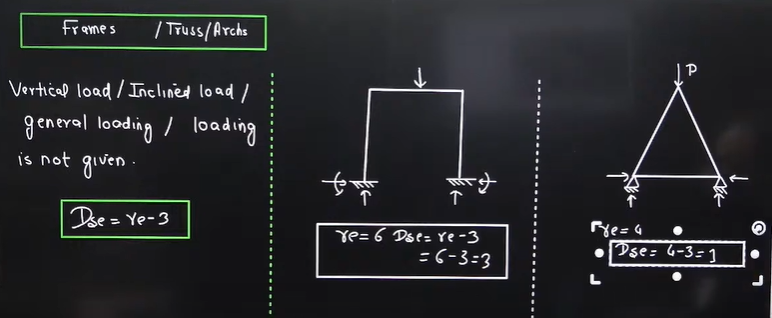 Frames / Truss/Archs
Vertical load / Inclined load /
general loading / loading
is not given.
Dse = re-3
re=6 Dse= re-3
= 6-3=3
P
re=4
Dse= 4-3=1